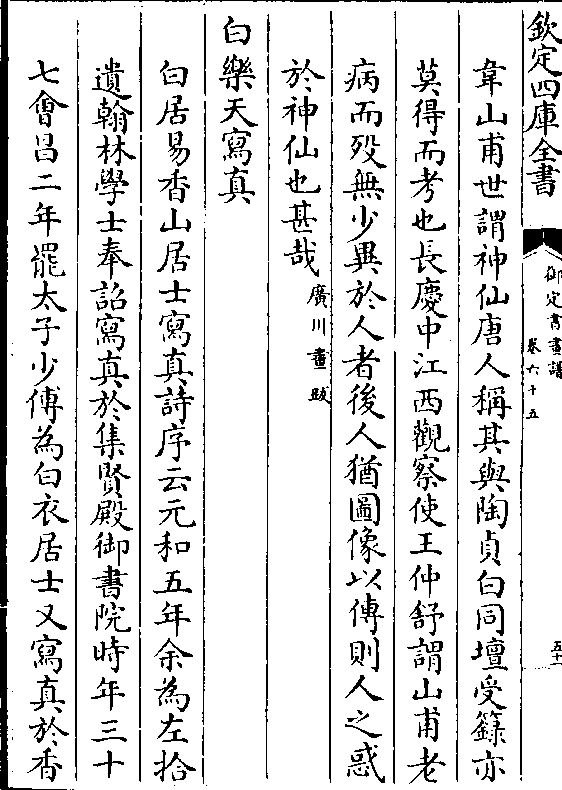 欽定四庫全書
御定書畫譜
卷六十五
五十一
韋山甫世謂神仙唐人稱其與陶貞白同壇受籙亦
莫得而考也長慶中江西觀察使王仲舒謂山甫老
病而歿無少異於人者後人猶圖像以傳則人之惑
於神仙也甚哉廣川畫跋
白樂天寫真
白居易香山居士寫真詩序云元和五年余為左拾
遺翰林學士奉詔寫真於集賢殿御書院時年三十
七會昌二年罷太子少傅為白衣居士又寫真於香